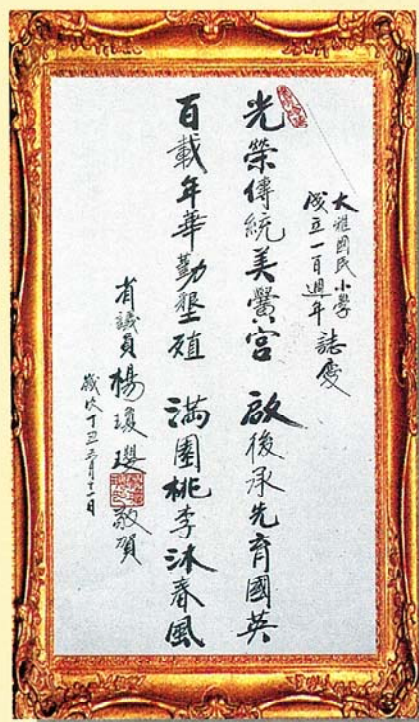 大雅國民小學
成立一百週年 誌慶
光榮傳統美黌宮 啟後承先育國英
百載年華勤墾殖 滿園桃李沐春風
省議員楊瓊瓔 敬賀
歲次丁丑月十一日